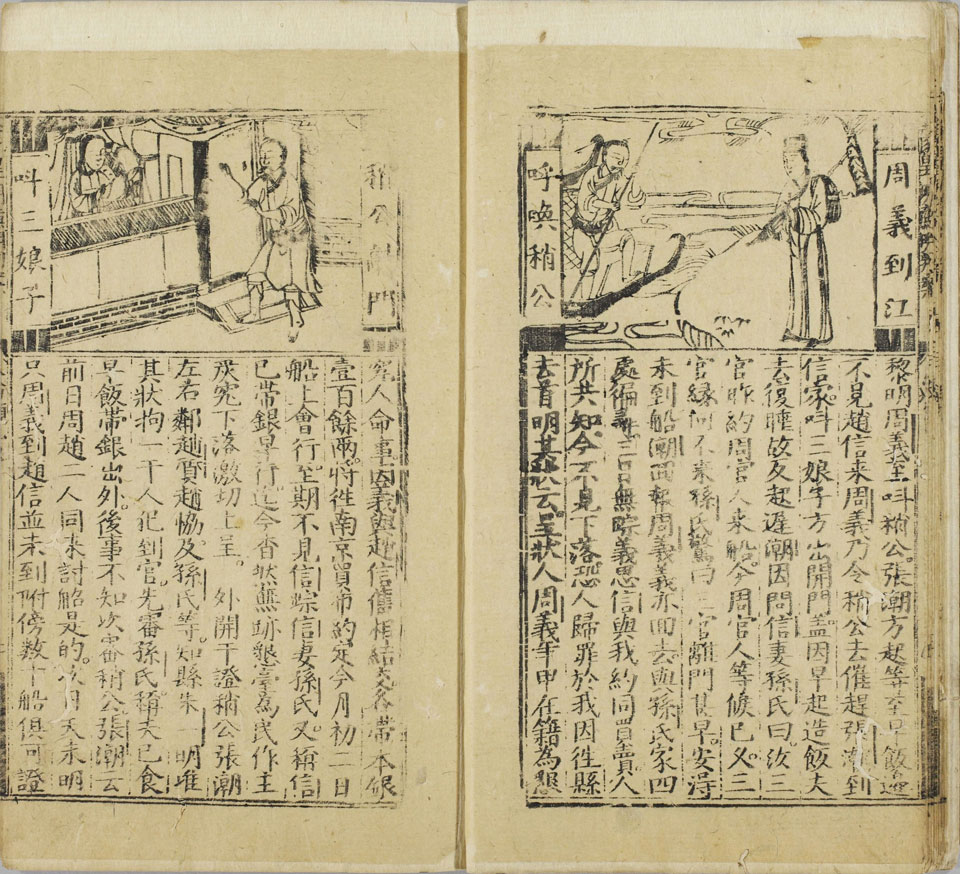 周義到江
呼喚稍公
黎明周義至叫稍公張潮方起等至早飯過
不見趙信来周義乃令稍公去催趕張潮到
信家叫三娘子方出開門盖因早起造飯夫
去後睡故反起遲潮因問信妻孫氏曰汝三
官昨約周官人来船今周官人等候已久三
官縁何不来孫氏驚曰三官離門甚早安得
未到船潮囬報周義義亦囬去與孫氏家四
處徧三日無踪義思信與我約同買賣人
所共知今不見下落恐人歸罪於我因往縣
去首明其狀云呈狀人周義年甲在籍為懇
稍公門
叫三娘子
究人命事因義與趙信舊相結交各帶本銀
壹百餘兩將徃南京買布約定今月初一日
船上會行至期不見信踪信妻孫氏又稱信
已帯銀早行迄今杳然無跡懇亭為民作主
嚴究下落激切上呈 外開干證稍公張潮
左右鄰趙質趙協及孫氏等知縣朱一明唯
其狀拘一干人犯到官先審孫氏稱夫已食
早飯帯銀出外後事不知次審稍公張潮云
前日周趙二人同来討船是的次日天未明
只周義到趙信並未到附傍数十船俱可證